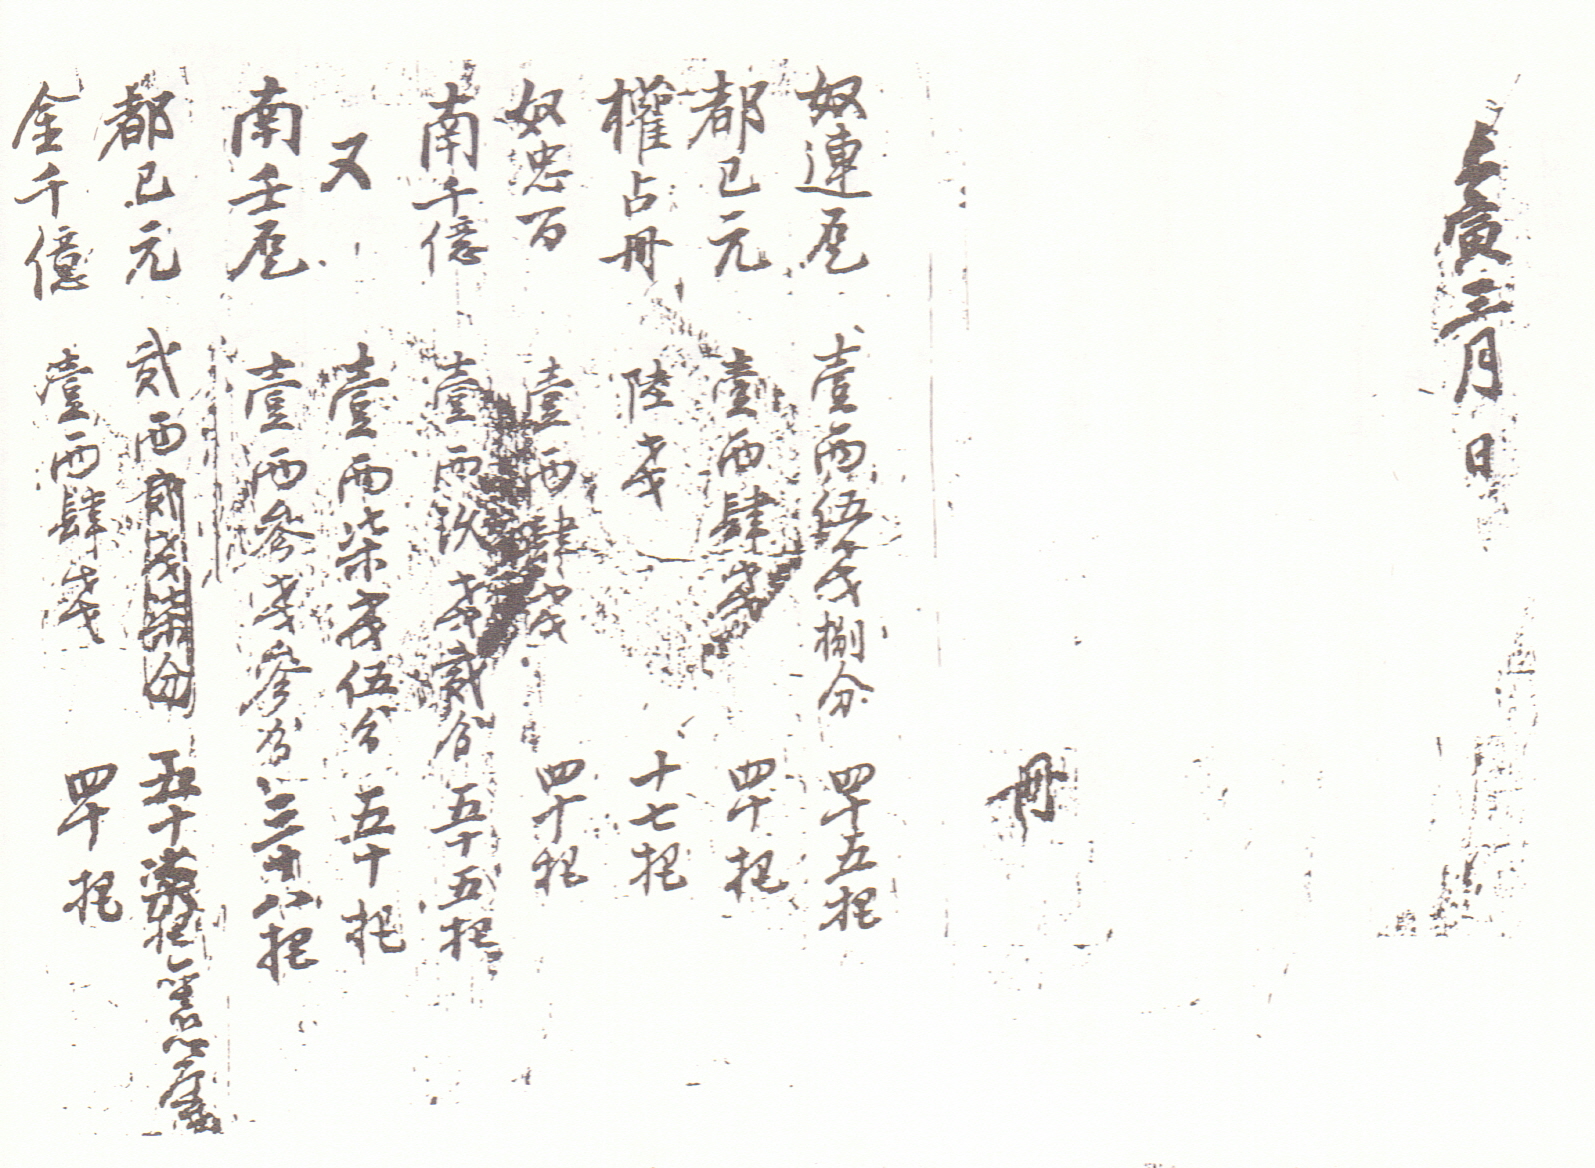 寅三月 日
冊
奴連 壹兩伍戔捌分 四十五把
都已元 壹兩肆戔 四十把
權占冊 陸戔 十七把
奴忠百 壹兩肆戔 四十把
南千億 壹兩玖戔貳分 五十五把
又 壹兩柒戔伍分 五十把
南壬 壹兩參戔參分 三十八把
都已元 貳兩貳戔柒分 五十 把
金千億 壹兩肆戔 四十把